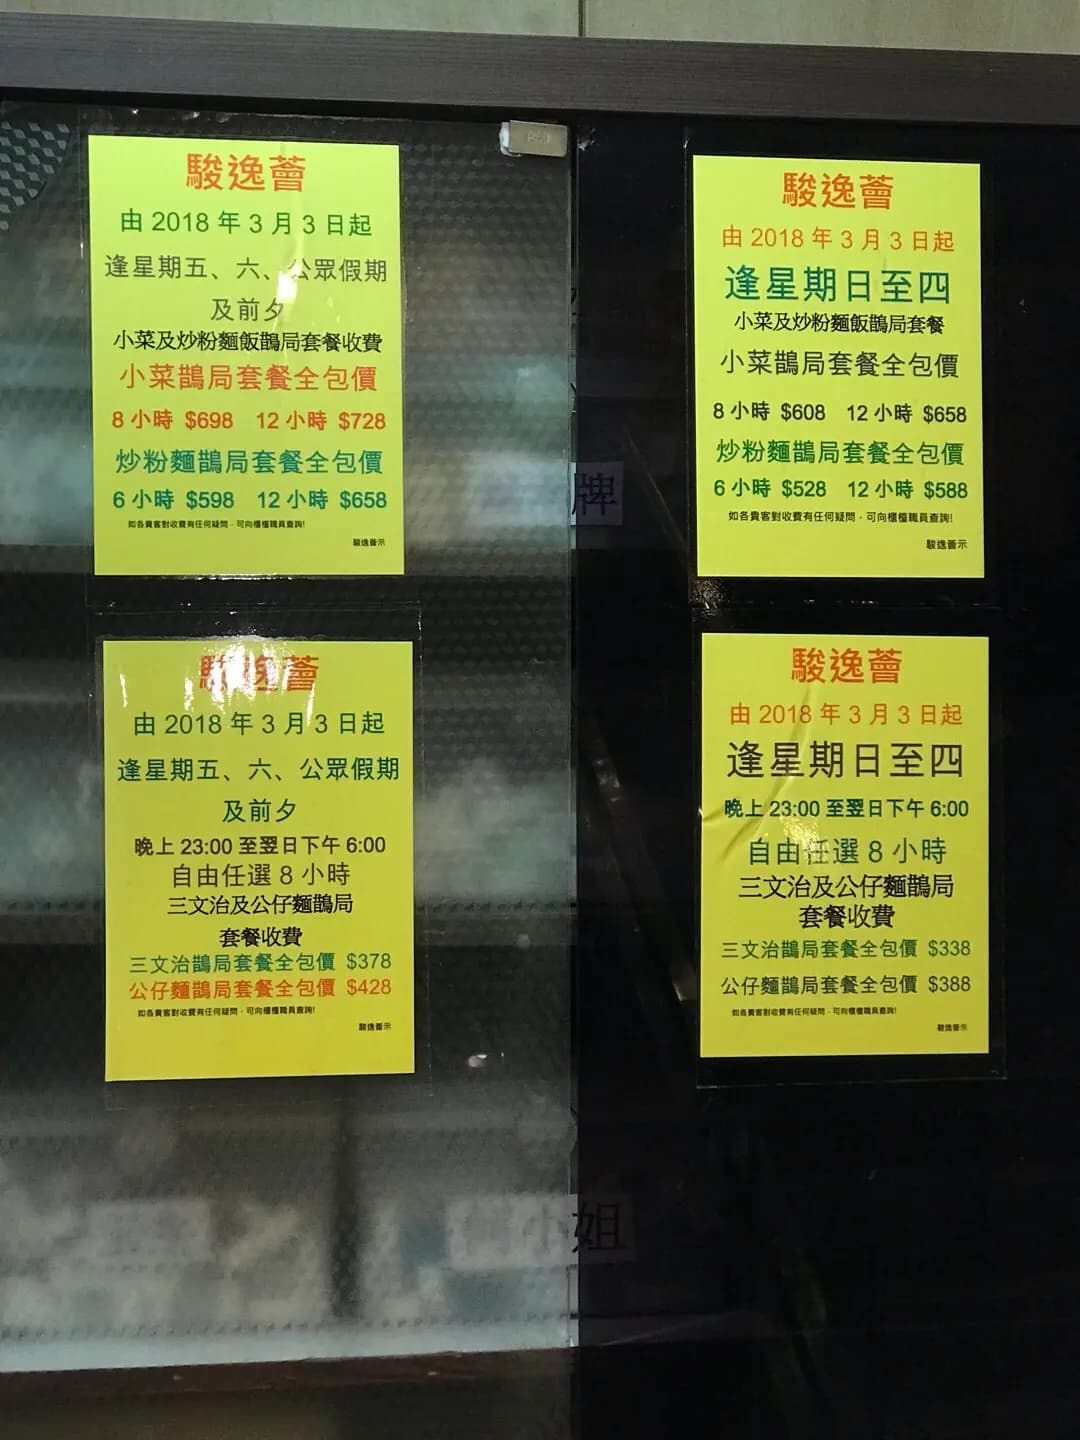 駿逸薈
由 2018 年 3 月 3 日起
逢星期五、六、公眾假期
及前夕
小菜及炒粉麵飯鵲局套餐收費
小菜鵲局套餐全包價
8 小時 $698 12 小時 $728
炒粉麵鵲局套餐全包價
6 小時 $598 12 小時 $658
如各貴客對收費有任何疑問，可向櫃檯職員查詢!
駿逸薈示
駿逸薈
由 2018 年 3 月 3 日起
逢星期日至四
小菜及炒粉麵飯鵲局套餐
小菜鵲局套餐全包價
8 小時 $608 12 小時 $658
炒粉麵鵲局套餐全包價
6 小時 $528 12 小時 $588
如各貴客對收費有任何疑問，可向櫃檯職員查詢!
駿逸薈示
駿逸薈
由 2018 年 3 月 3 日起
逢星期五、六、公眾假期
及前夕
晚上 23:00 至翌日下午 6:00
自由任選 8 小時
三文治及公仔麵鵲局
套餐收費
三文治鵲局套餐全包價 $378
公仔麵鵲局套餐全包價 $428
如各貴客對收費有任何疑問，可向櫃檯職員查詢!
駿逸薈示
駿逸薈
由 2018 年 3 月 3 日起
逢星期日至四
晚上 23:00 至翌日下午 6:00
自由任選 8 小時
三文治及公仔麵鵲局
套餐收費
三文治鵲局套餐全包價 $338
公仔麵鵲局套餐全包價 $388
如各貴客對收費有任何疑問，可向櫃檯職員查詢!
駿逸薈示
牌
小姐